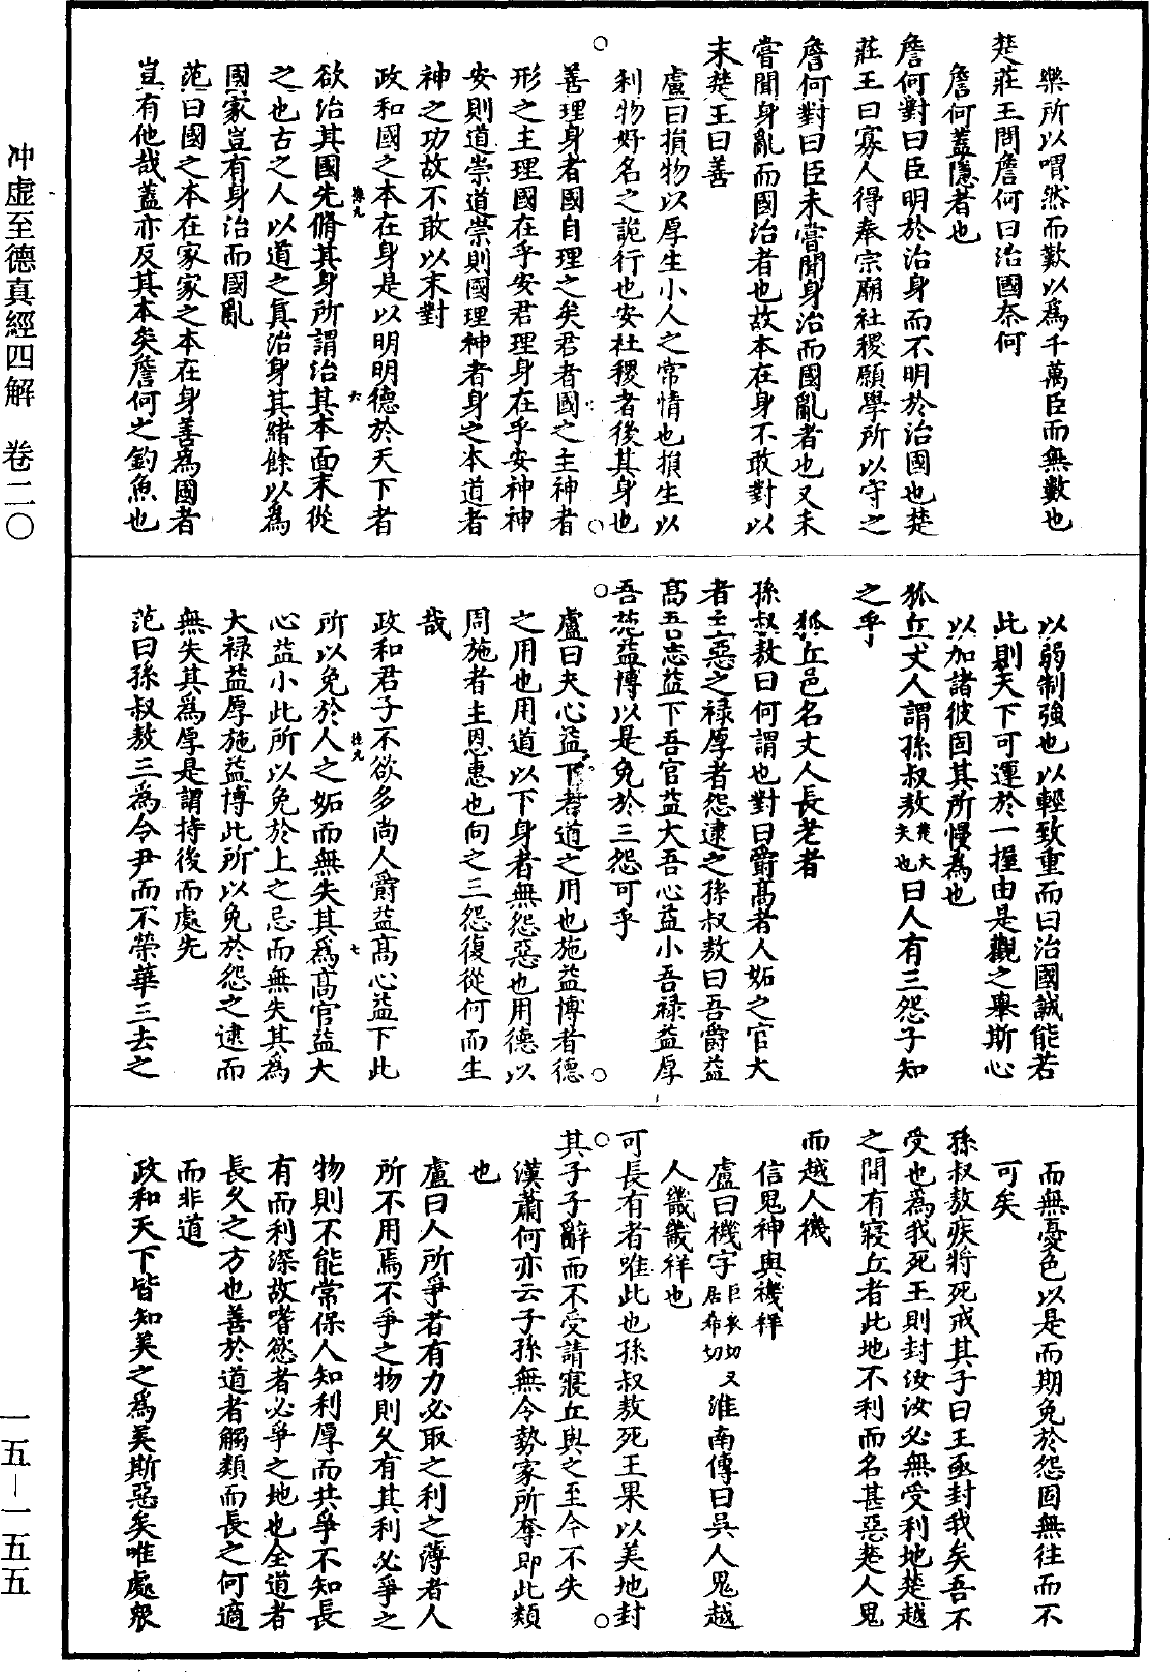 樂所以喟然而歎以爲千萬臣而無數也
楚莊王問詹何曰治國奈何
詹何蓋隱者也
詹何對曰臣明於治身而不明於治國也楚
莊王曰寡人得奉宗廟社稷願學所以守之
詹何對曰臣未嘗聞身治而國亂者也又未
嘗聞身亂而國治者也故本在身不敢對以
末楚王曰善
盧曰損物以厚生小人之常情也損生以
利物好名之詭行也安社稷者後其身也
善理身者國自理之矣君者國之主神者
形之主理國在乎安君理身在乎安神神
安則道崇道崇則國理神者身之本道者
神之功故不敢以末對
政和國之本在身是以明明德於天下者
欲治其國先脩其身所謂治其本而末從
之也古之人以道之真治身其緒餘以爲
國家豈有身治而國亂
范曰國之本在家家之本在身善爲國者
豈有他哉蓋亦反其本矣詹何之釣魚也
以弱制強也以輕致重而曰治國誠能若
此則天下可運於一握由是觀之舉斯心
以加諸彼固其所慢爲也
狐丘丈人謂孫叔敖楚大夫也曰人有三怨子知
之乎
狐丘邑名丈人長老者
孫叔敖曰何謂也對曰爵高者人妬之官大
者主惡之祿厚者怨逮之孫叔敖曰吾爵益
高吾志益下吾官益大吾心益小吾祿益厚
吾施益博以是免於三怨可乎
盧曰夫心益下者道之用也施益博者德
之用也用道以下身者無怨惡也用德以
周施者主恩惠也向之三怨復從何而生
哉
政和君子不欲多尚人爵益高心益下此
所以免於人之妬而無失其爲高官益大
心益小此所以免於上之忌而無失其爲
大祿益厚施益博此所以免於怨之逮而
無失其爲厚是謂持後而處先
范曰孫叔敖三爲令尹而不榮華三去之
而無憂色以是而期免於怨固無往而不
可矣
孫叔敖疾將死戒其子曰王亟封我矣吾不
受也爲我死王則封汝汝必無受利地楚越
之間有寢丘者此地不利而名甚惡楚人鬼
而越人機
信鬼神與禨祥
盧曰禨字巨衣切又居希切淮南傳曰吳人鬼越
人畿畿祥也
可長有者唯此也孫叔敖死王果以美地封
其子子辭而不受請寢丘與之至今不失
漢蕭何亦云子孫無令勢家所奪即此類
也
盧曰人所爭者有力必取之利之薄者人
所不用焉不爭之物則久有其利必爭之
物則不能常保人知利厚而共爭不知長
有而利深故嗜慾者必爭之地也全道者
長久之方也善於道者觸類而長之何適
而非道
政和天下皆知美之爲美斯惡矣唯處衆
冲虛至德真經四解　卷二〇
一五—一五五